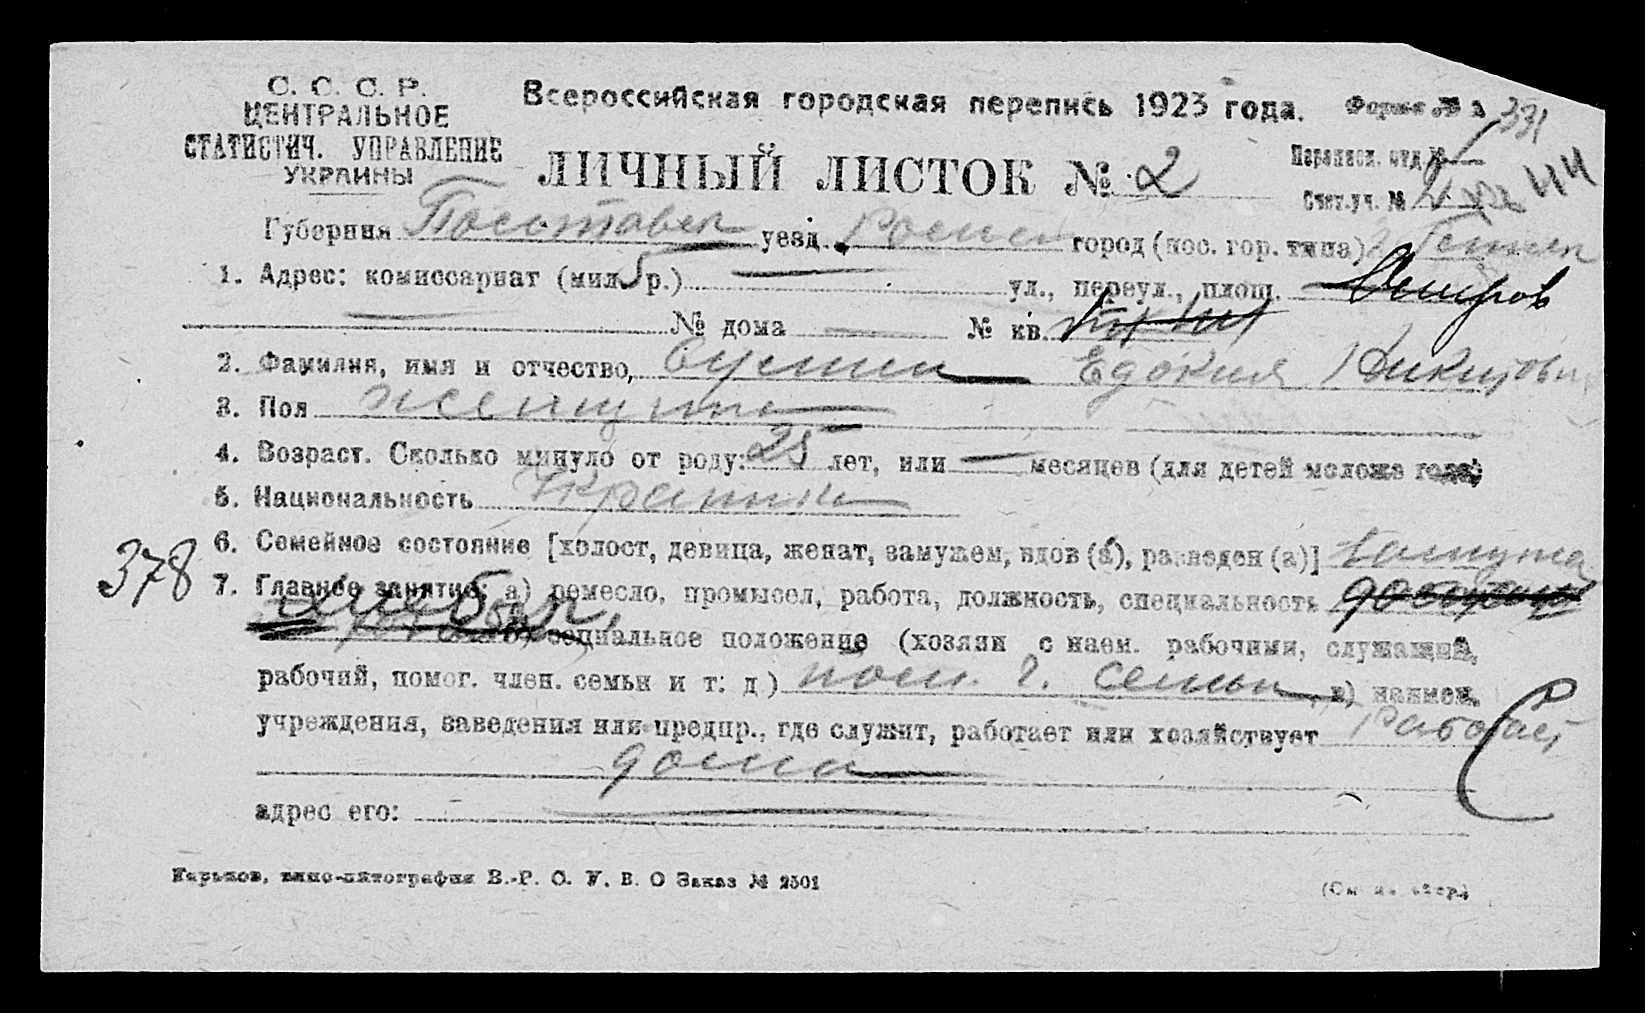 С. С. С. Р.
ЦЕНТРАЛЬНОЕ
СТАТИСТИЧ. УПРАВЛЕНИЕ
УКРАИНЫ
Всероссийская городская перепись 1923 года.
Форма № 331
ЛИЧНЫЙ ЛИСТОК № 2
Переписн. отд. №
Счет. уч. № 44
Губерния Полтавск уезд Ромен город (пос. гор. типа)
1. Адрес: комиссариат (мил. р.) ул., переул., площ.
№ дома № кв.
2. Фамилия, имя и отчество, Едокия Никитовн
3. Пол женщина
4. Возраст. Сколько минуло от роду: 25 лет, или — месяцев (для детей моложе года)
5. Национальность Украинка
6. Семейное состояние [холост, девица, женат, замужем, вдов (а), разведен (а)] замужем
378
7. Главное занятие: а) ремесло, промысел, работа, должность, специальность
б) социальное положение (хозяин с наем. рабочими, служащий,
рабочий, помог. член. семьи и т. д) пом. ч. семьи в) наимен.
учреждения, заведения или предпр., где служит, работает или хозяйствует Работает
дома
адрес его:
Харьков, типо-литография В.-Р. О. У. В. О Заказ № 2501
(См на обор.)